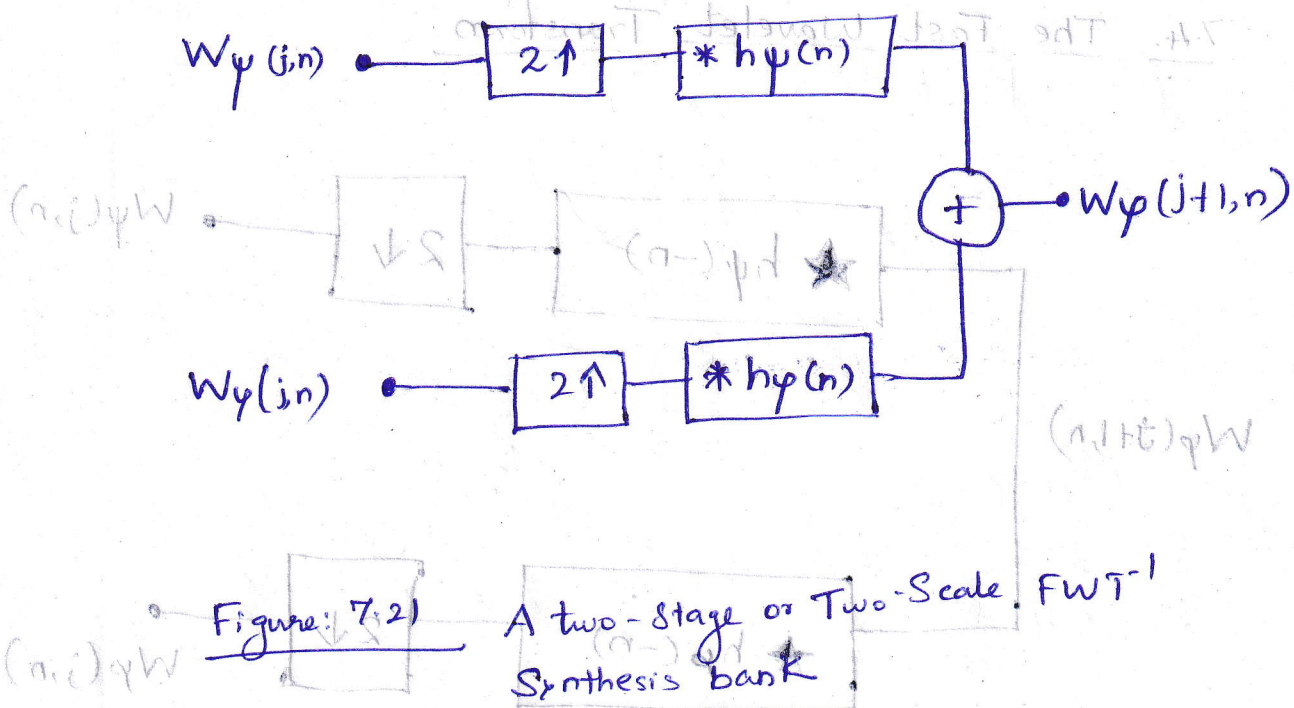 Wψ (j,n) 2↑ * hψ(n)
+ Wφ(j+1,n)
Wφ(j,n) 2↑ * hφ(n)
Figure: 7.21 A two-Stage or Two-Scale FWT⁻¹
Synthesis bank